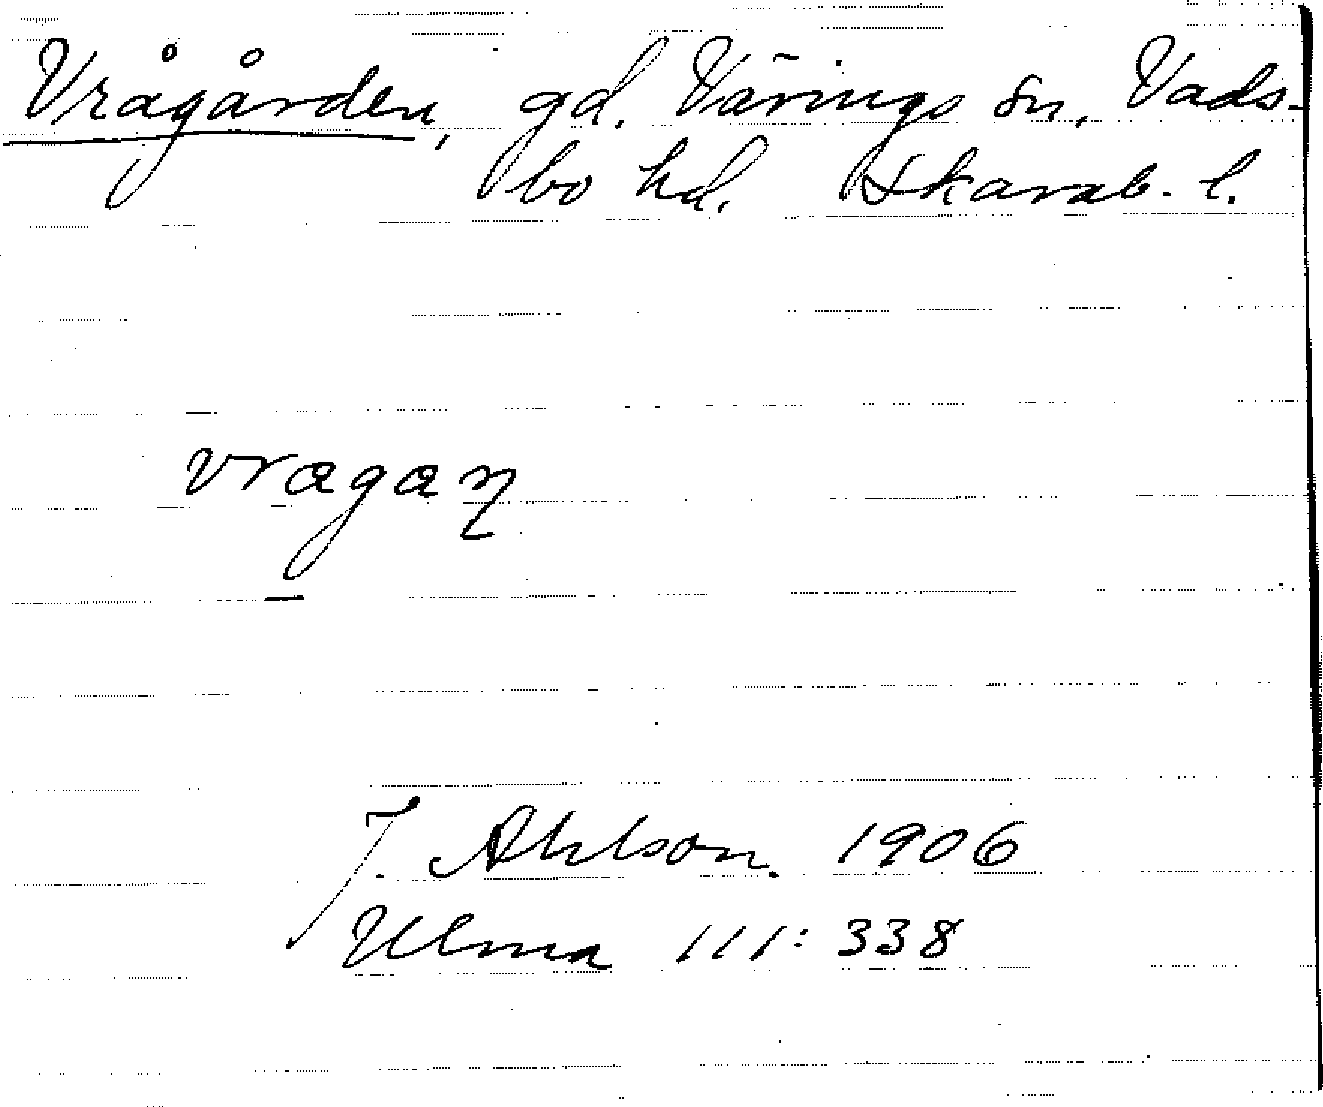 Vrågården, gd. Värings sn, Vads-
bo hd. Skarab. l.
vragaꞃ
J. Ahlson. 1906
Ulma 111: 338